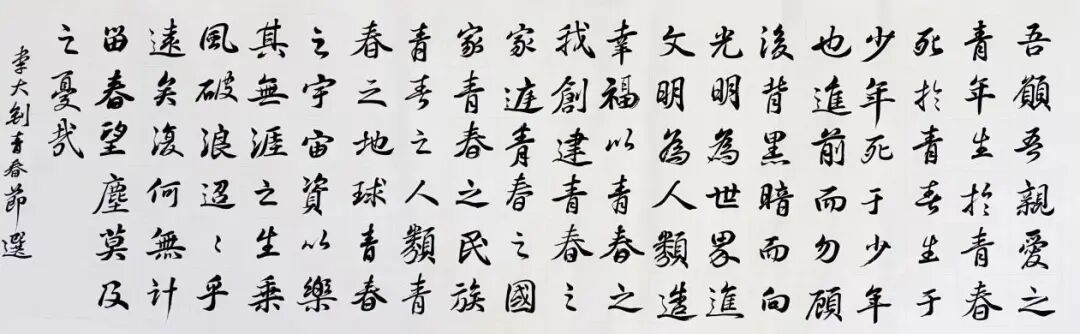 吾願吾親愛之
青年生於青春
死於青春生于
少年死于少年
也進前而勿顧
後背黑暗而向
光明為世界進
文明為人類造
幸福以青春之
我創建青春之
家庭青春之國
家青春之民族
青春之人類青
春之地球青春
之宇宙資以樂
其無涯之生乘
風破浪迢〻乎
遠矣復何無計
留春望塵莫及
之憂哉
李大釗青春節選